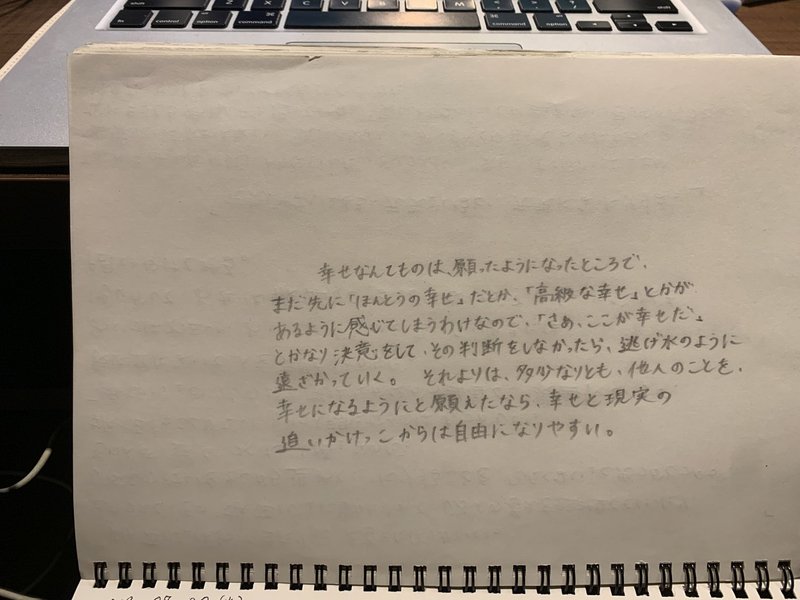 Z X C V B N M
shift
fn control option command
command option
幸せなんてものは、願ったようになったところで、
まだ先に「ほんとうの幸せ」だとか、「高級な幸せ」とかが
あるように感じてしまうわけなので、「さあ、ここが幸せだ」
とかなり決意をして、その判断をしなかったら、逃げ水のように
遠ざかっていく。 それよりは、多少なりとも、他人のことを、
幸せになるようにと願えたなら、幸せと現実の
追いかけっこからは自由になりやすい。